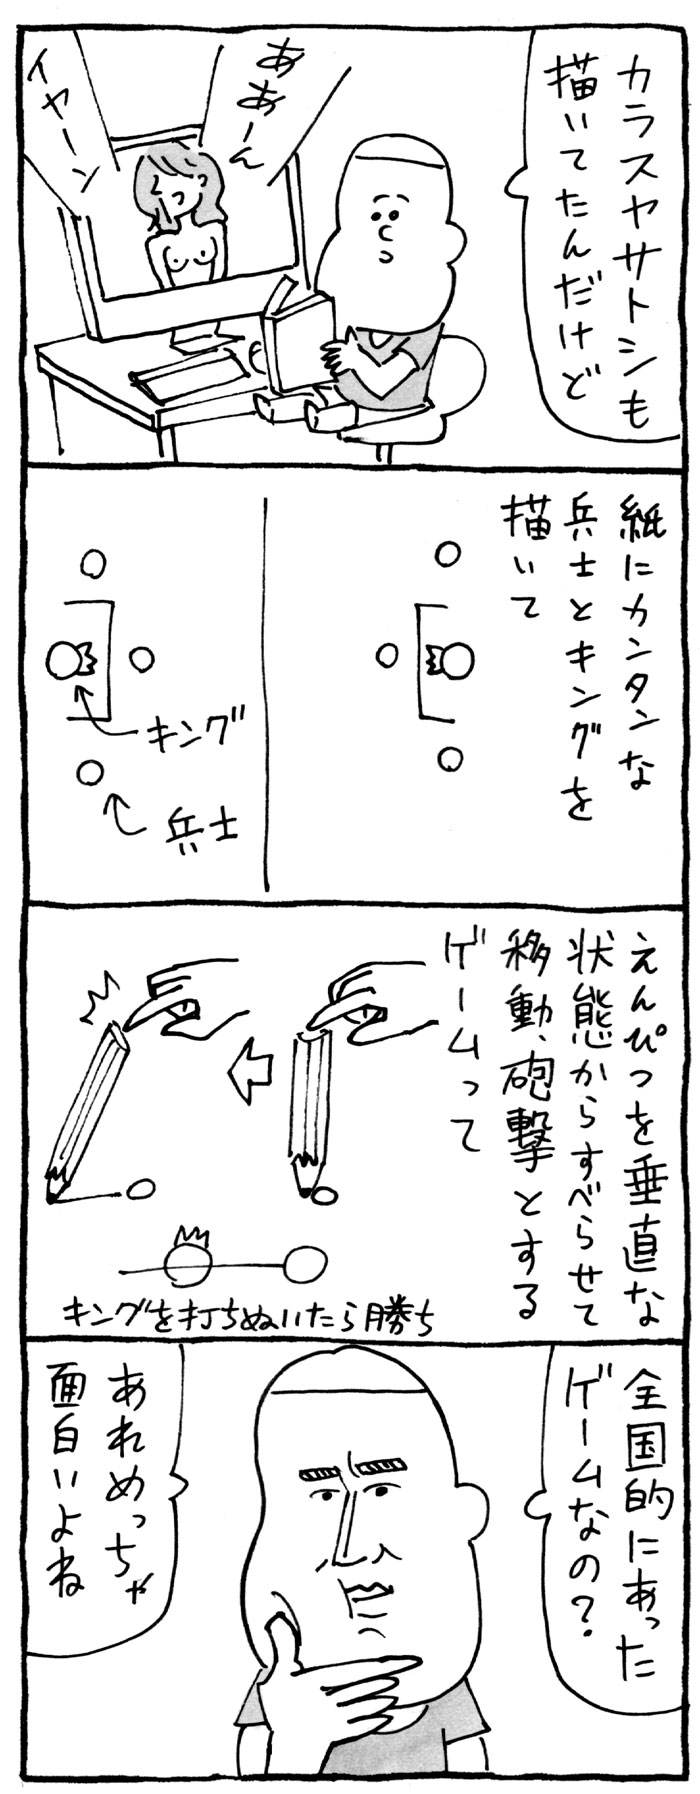 カラスヤサトシも
描いてたんだけど
ああーん
イヤーン
紙にカンタンな
兵士とキングを
描いて
キング
兵士
えんぴつを垂直な
状態からすべらせて
移動、砲撃とする
ゲームって
キングを打ちぬいたら勝ち
全国的にあった
ゲームなの？
あれめっちゃ
面白いよね